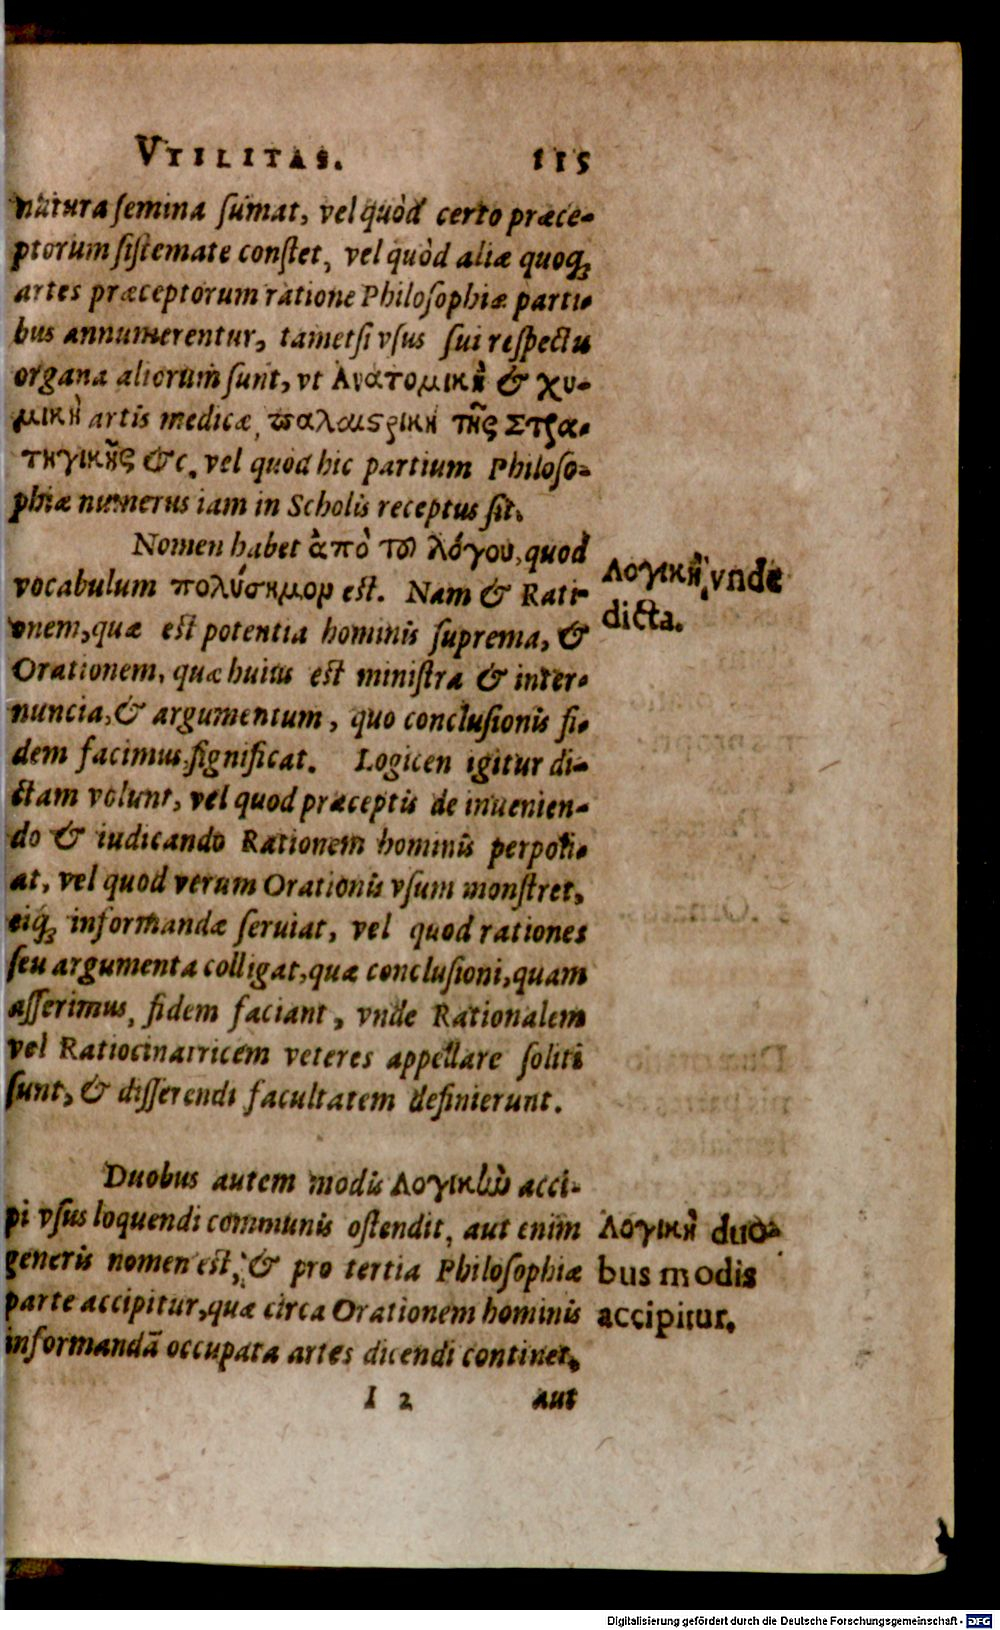 VTILITAS. 115
natura semina sumat, vel quòd certo præce-
ptorum sistemate constet, vel quòd aliæ quoq;
artes præceptorum ratione Philosophiæ parti-
bus annumerentur, tametsi vsus sui respectu
organa aliorum sunt, vt Ἀνατομικὴ & χυ-
μικὴ artis medicæ, παλαιςρικὴ τῆς Στρα-
τηγικῆς &c. vel quod hic partium Philoso-
phiæ numerus iam in Scholis receptus sit.
Nomen habet ἀπὸ τοῦ λόγου, quod
vocabulum πολύσημον est. Nam & Rati-
onem, quæ est potentia hominis suprema, &
Orationem, quæ huius est ministra & inter-
nuncia, & argumentum, quo conclusionis fi-
dem facimus, significat. Logicen igitur di-
ctam volunt, vel quod præceptis de inuenien-
do & iudicando Rationem hominis perpoli-
at, vel quod verum Orationis vsum monstret,
eiq; informandæ seruiat, vel quod rationes
seu argumenta colligat, quæ conclusioni, quam
asserimus, fidem faciant, vnde Rationalem
vel Ratiocinatricem veteres appellare soliti
sunt, & disserendi facultatem definierunt.
Λογικὴ vnde
dicta.
Duobus autem modis Λογικὼ acci-
pi vsus loquendi communis ostendit, aut enim
generis nomen est, & pro tertia Philosophiæ
parte accipitur, quæ circa Orationem hominis
informandā occupata artes dicendi continet,
Λογικὴ duo-
bus modis
accipitur.
I 2 aut
Digitalisierung gefördert durch die Deutsche Forschungsgemeinschaft - DFG